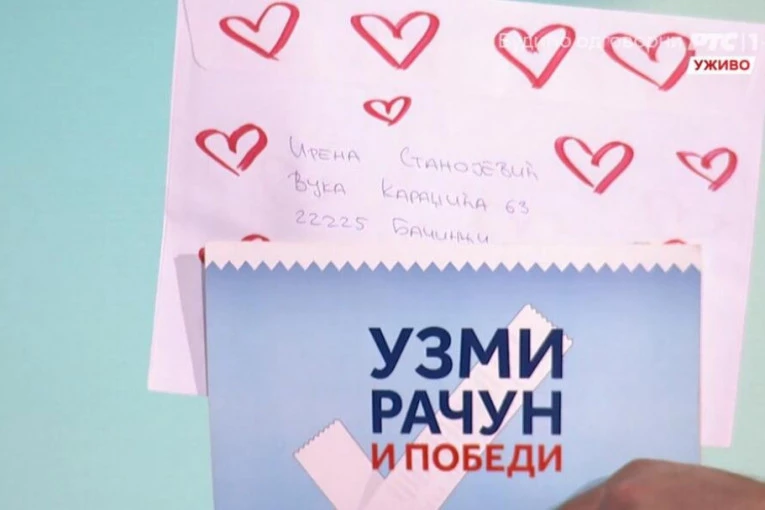 Будимо одговорни
РТС 1
УЖИВО
Ирена Станојевић
Вука Караџића 63
22225 Бачинци
УЗМИ
РАЧУН
И ПОБЕДИ